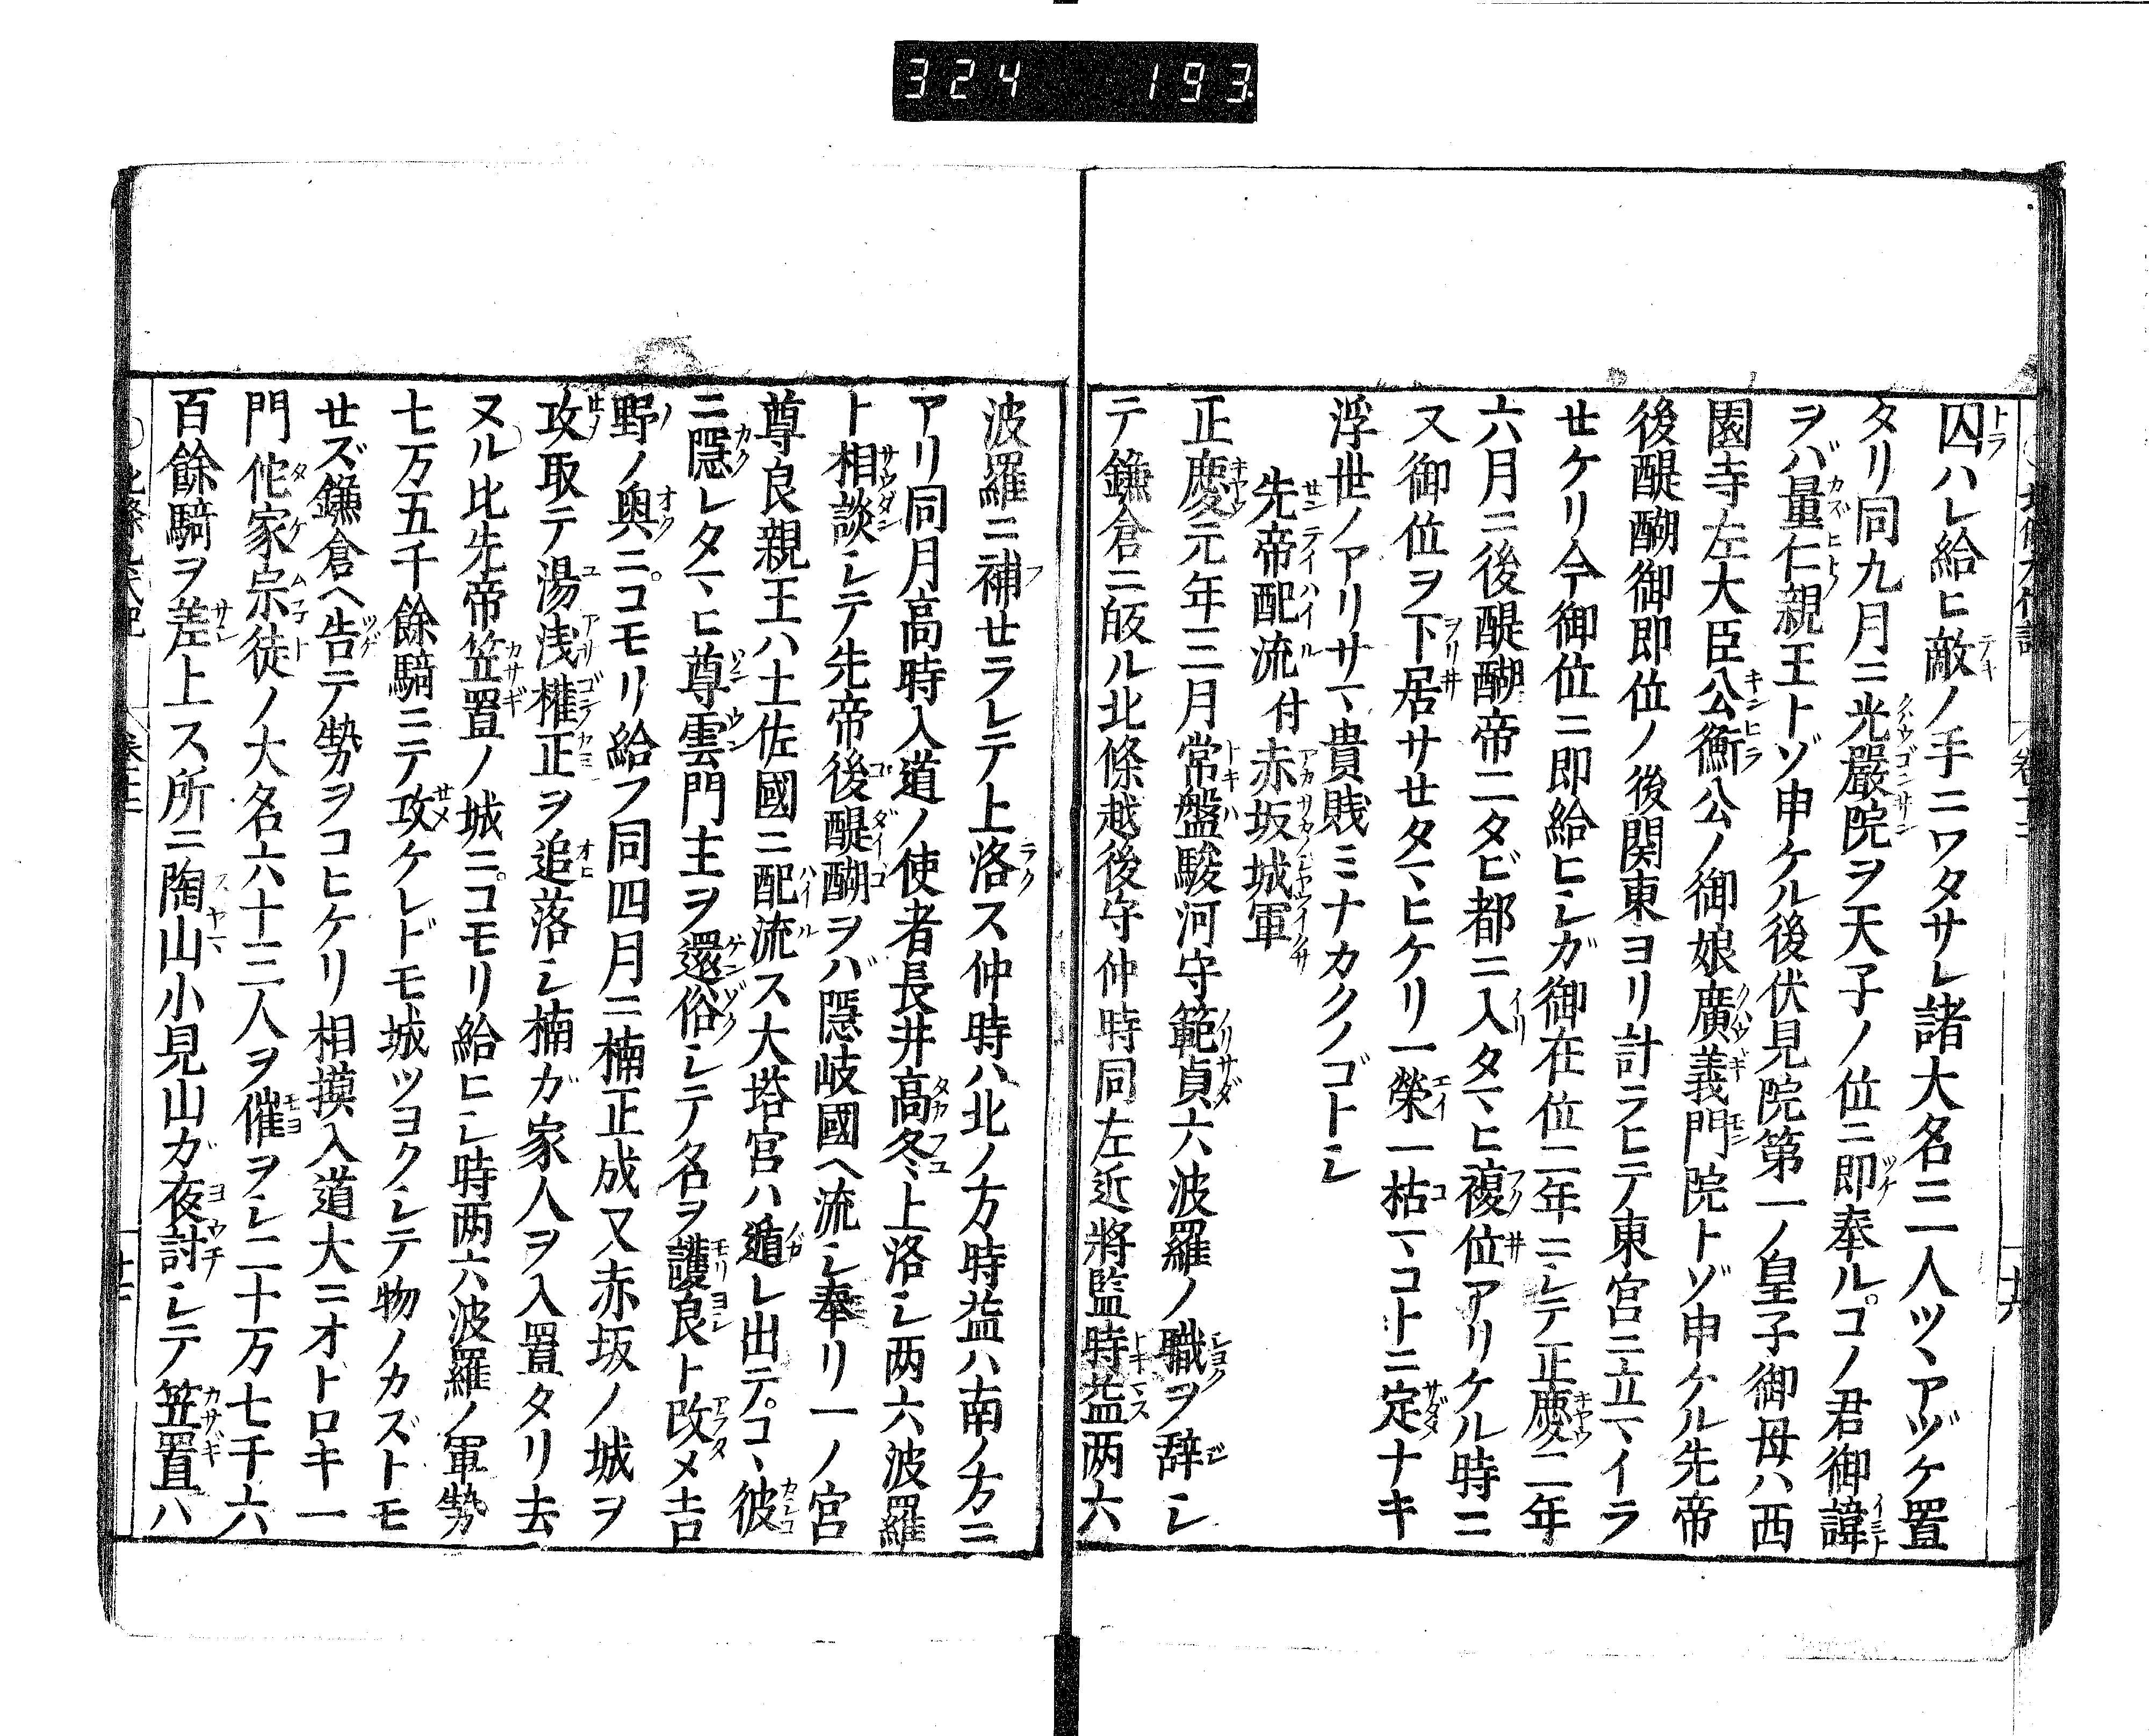 324 193
囚ハレ給ヒ敵ノ手ニワタサレ諸大名二人ツヽアヅケ置
タリ同九月ニ光嚴院ヲ天子ノ位ニ即奉ルコノ君御諱
ヲバ量仁親王トゾ申ケル後伏見院第一ノ皇子御母ハ西
園寺左大臣公衡公ノ御娘廣義門院トゾ申ケル先帝
後醍醐御即位ノ後関東ヨリ計ラヒテ東宮ニ立マイラ
せケリ今御位ニ即給ヒシガ御在位二年ニシテ正慶二年
六月ニ後醍醐帝二タビ都ニ入タマヒ複位アリケル時ニ
又御位ヲ下居サせタマヒケリ一榮一枯マコトニ定ナキ
浮世ノアリサマ貴賎ミナカクノゴトシ
先帝配流付赤坂城軍
正慶元年三月常盤駿河守範貞六波羅ノ職ヲ辞シ
テ鎌倉ニ皈ル北條越後守仲時同左近將監時益两六
波羅ニ補せラレテ上洛ス仲時ハ北ノ方時益ハ南ノ方ニ
アリ同月高時入道ノ使者長井高冬上洛シ两六波羅
ト相談シテ先帝後醍醐ヲバ隠岐國ヘ流シ奉リ一ノ宮
尊良親王ハ土佐國ニ配流ス大塔宮ハ遁レ出テコヽ彼
ニ隠レタマヒ尊雲門主ヲ還俗シテ名ヲ護良ト改メ吉
野ノ奥ニコモリ給フ同四月ニ楠正成又赤坂ノ城ヲ
攻取テ湯浅権正ヲ追落シ楠ガ家人ヲ入置タリ去
ヌル比先帝笠置ノ城ニコモリ給ヒシ時两六波羅ノ軍勢
七万五千餘騎ニテ攻ケレドモ城ツヨクシテ物ノカズトモ
せズ鎌倉ヘ告テ勢ヲコヒケリ相摸入道大ニオドロキ一
門佗家宗徒ノ大名六十三人ヲ催ヲシ二十万七千六
百餘騎ヲ差上ス所ニ陶山小見山ガ夜討シテ笠置ハ